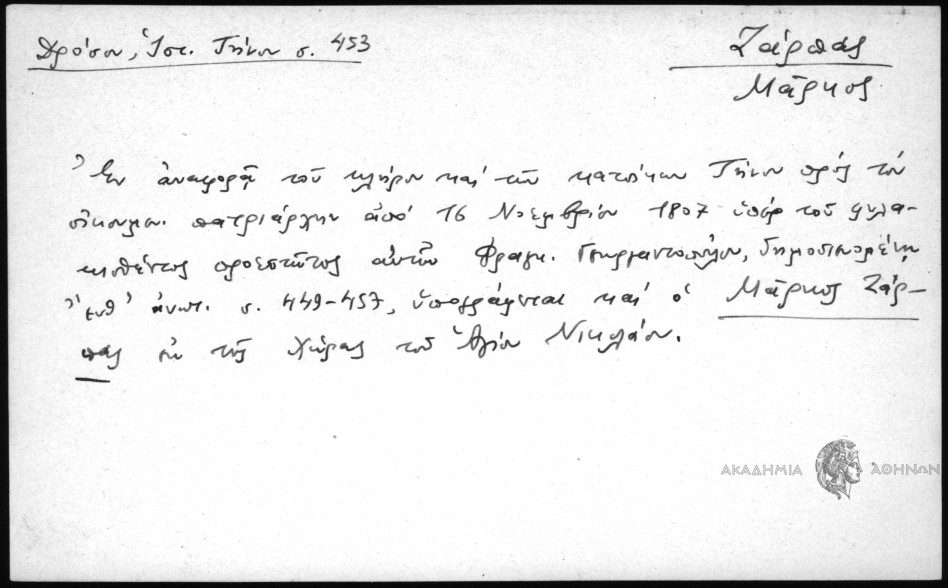 Δρόσου, Ἱστ. Τήνου σ. 453
Ζάρπας
Μᾶρκος
Ἐν ἀναφορᾷ τοῦ κλήρου καὶ τῶν κατοίκων Τήνου πρὸς τὸν
οἰκουμ. πατριάρχην ἀπὸ 16 Νοεμβρίου 1807 ὑπὲρ τοῦ φυλα-
κισθέντος προεστῶτος αὐτῶν Φραγκ. Γεωργαντοπούλου, δημοσιευομένῃ
ἔνθ' ἀνωτ. σ. 449-457, ὑπογράφεται καὶ ὁ Μᾶρκος Ζάρ-
πας ἐκ τῆς Χώρας τοῦ Ἁγίου Νικολάου.
ΑΚΑΔΗΜΙΑ ΑΘΗΝΩΝ